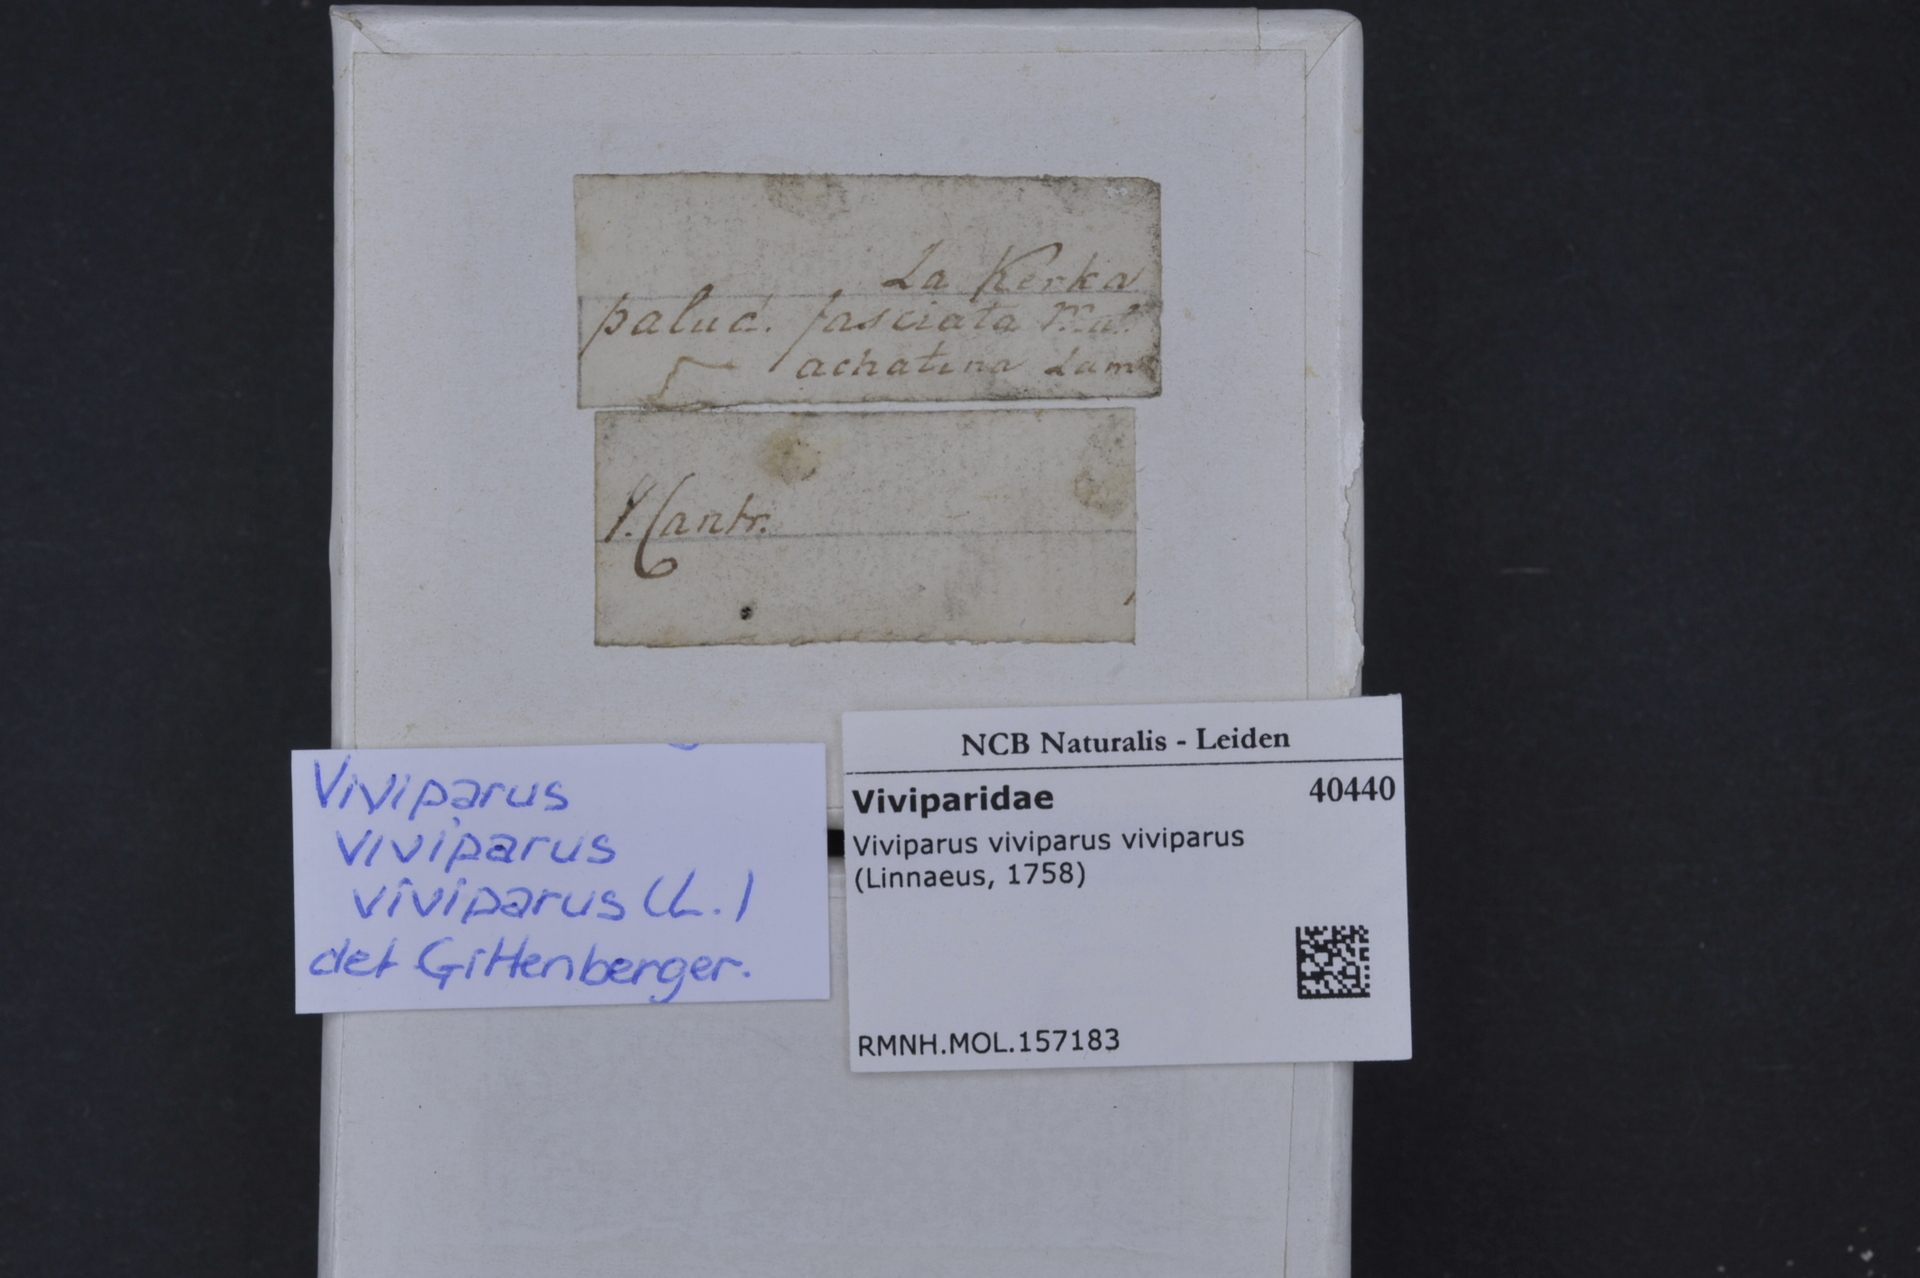 La Kerka
palud. fasciata Mul.
achatina Lam
Cantr.
Viviparus
viviparus
viviparus (L.)
det Gittenberger.
NCB Naturalis - Leiden
Viviparidae 40440
Viviparus viviparus viviparus
(Linnaeus, 1758)
RMNH.MOL.157183